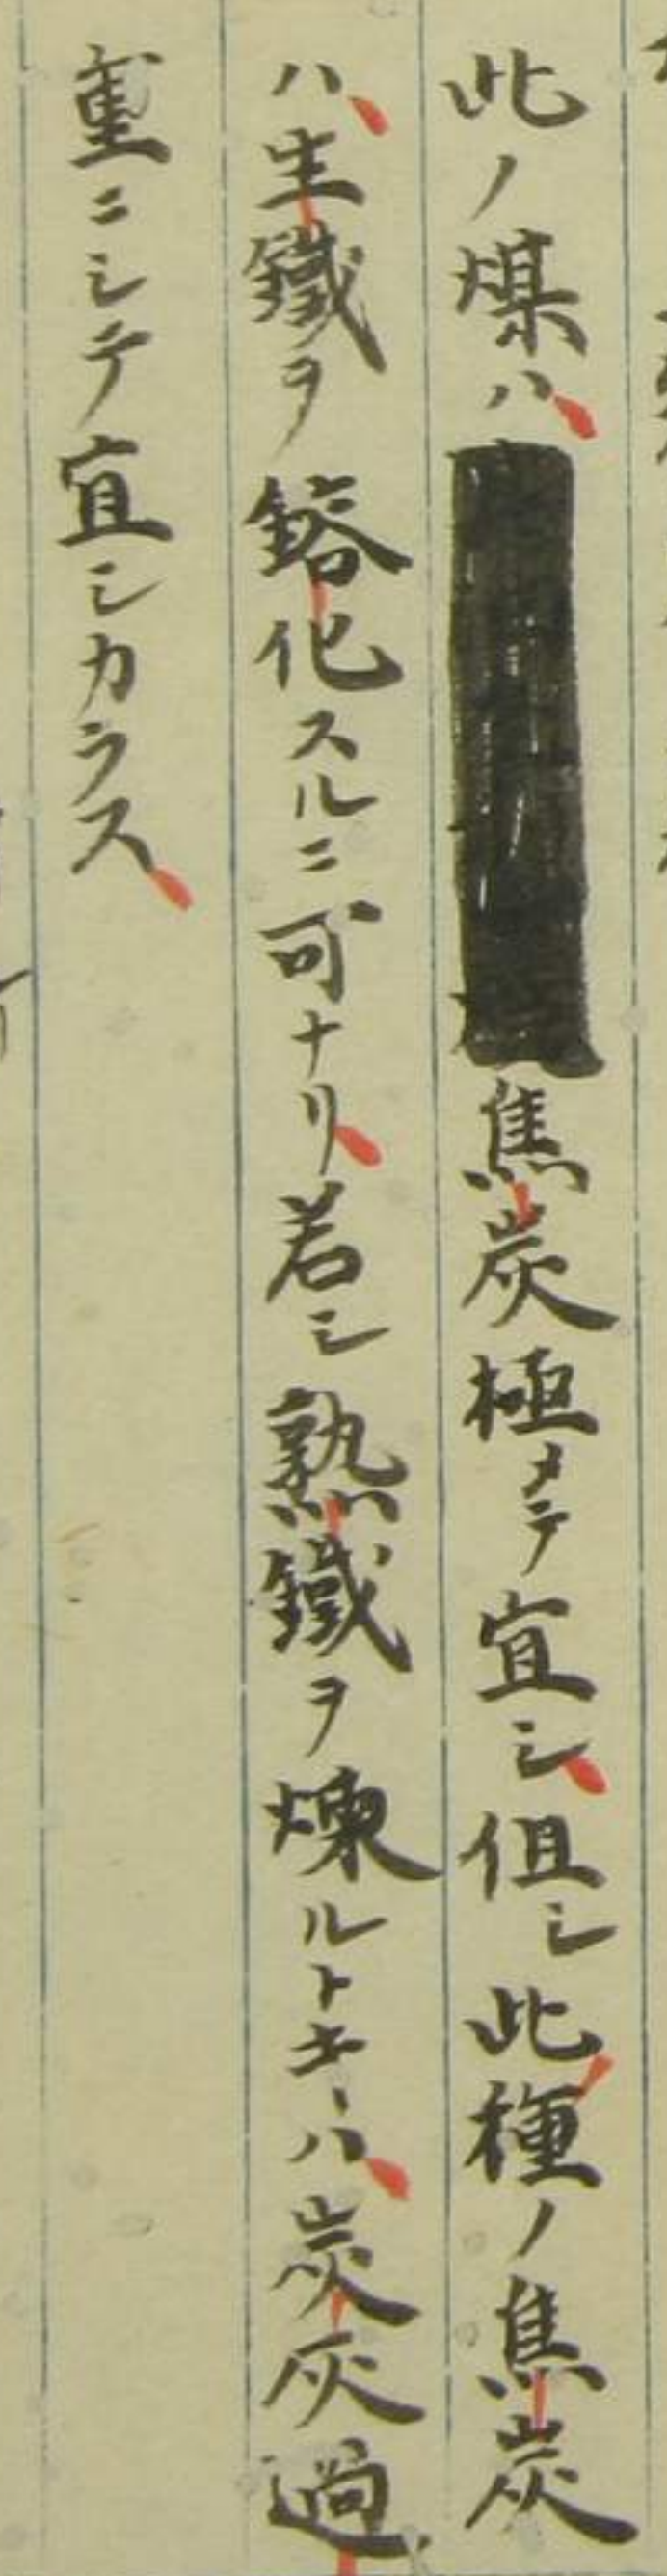 此ノ煤ハ焦炭極メテ宜シ但シ此種ノ焦炭
ハ生鐵ヲ鎔化スルニ可ナリ若シ熟鐵ヲ煉ルトキハ炭灰過
重ニシテ宜シカラス